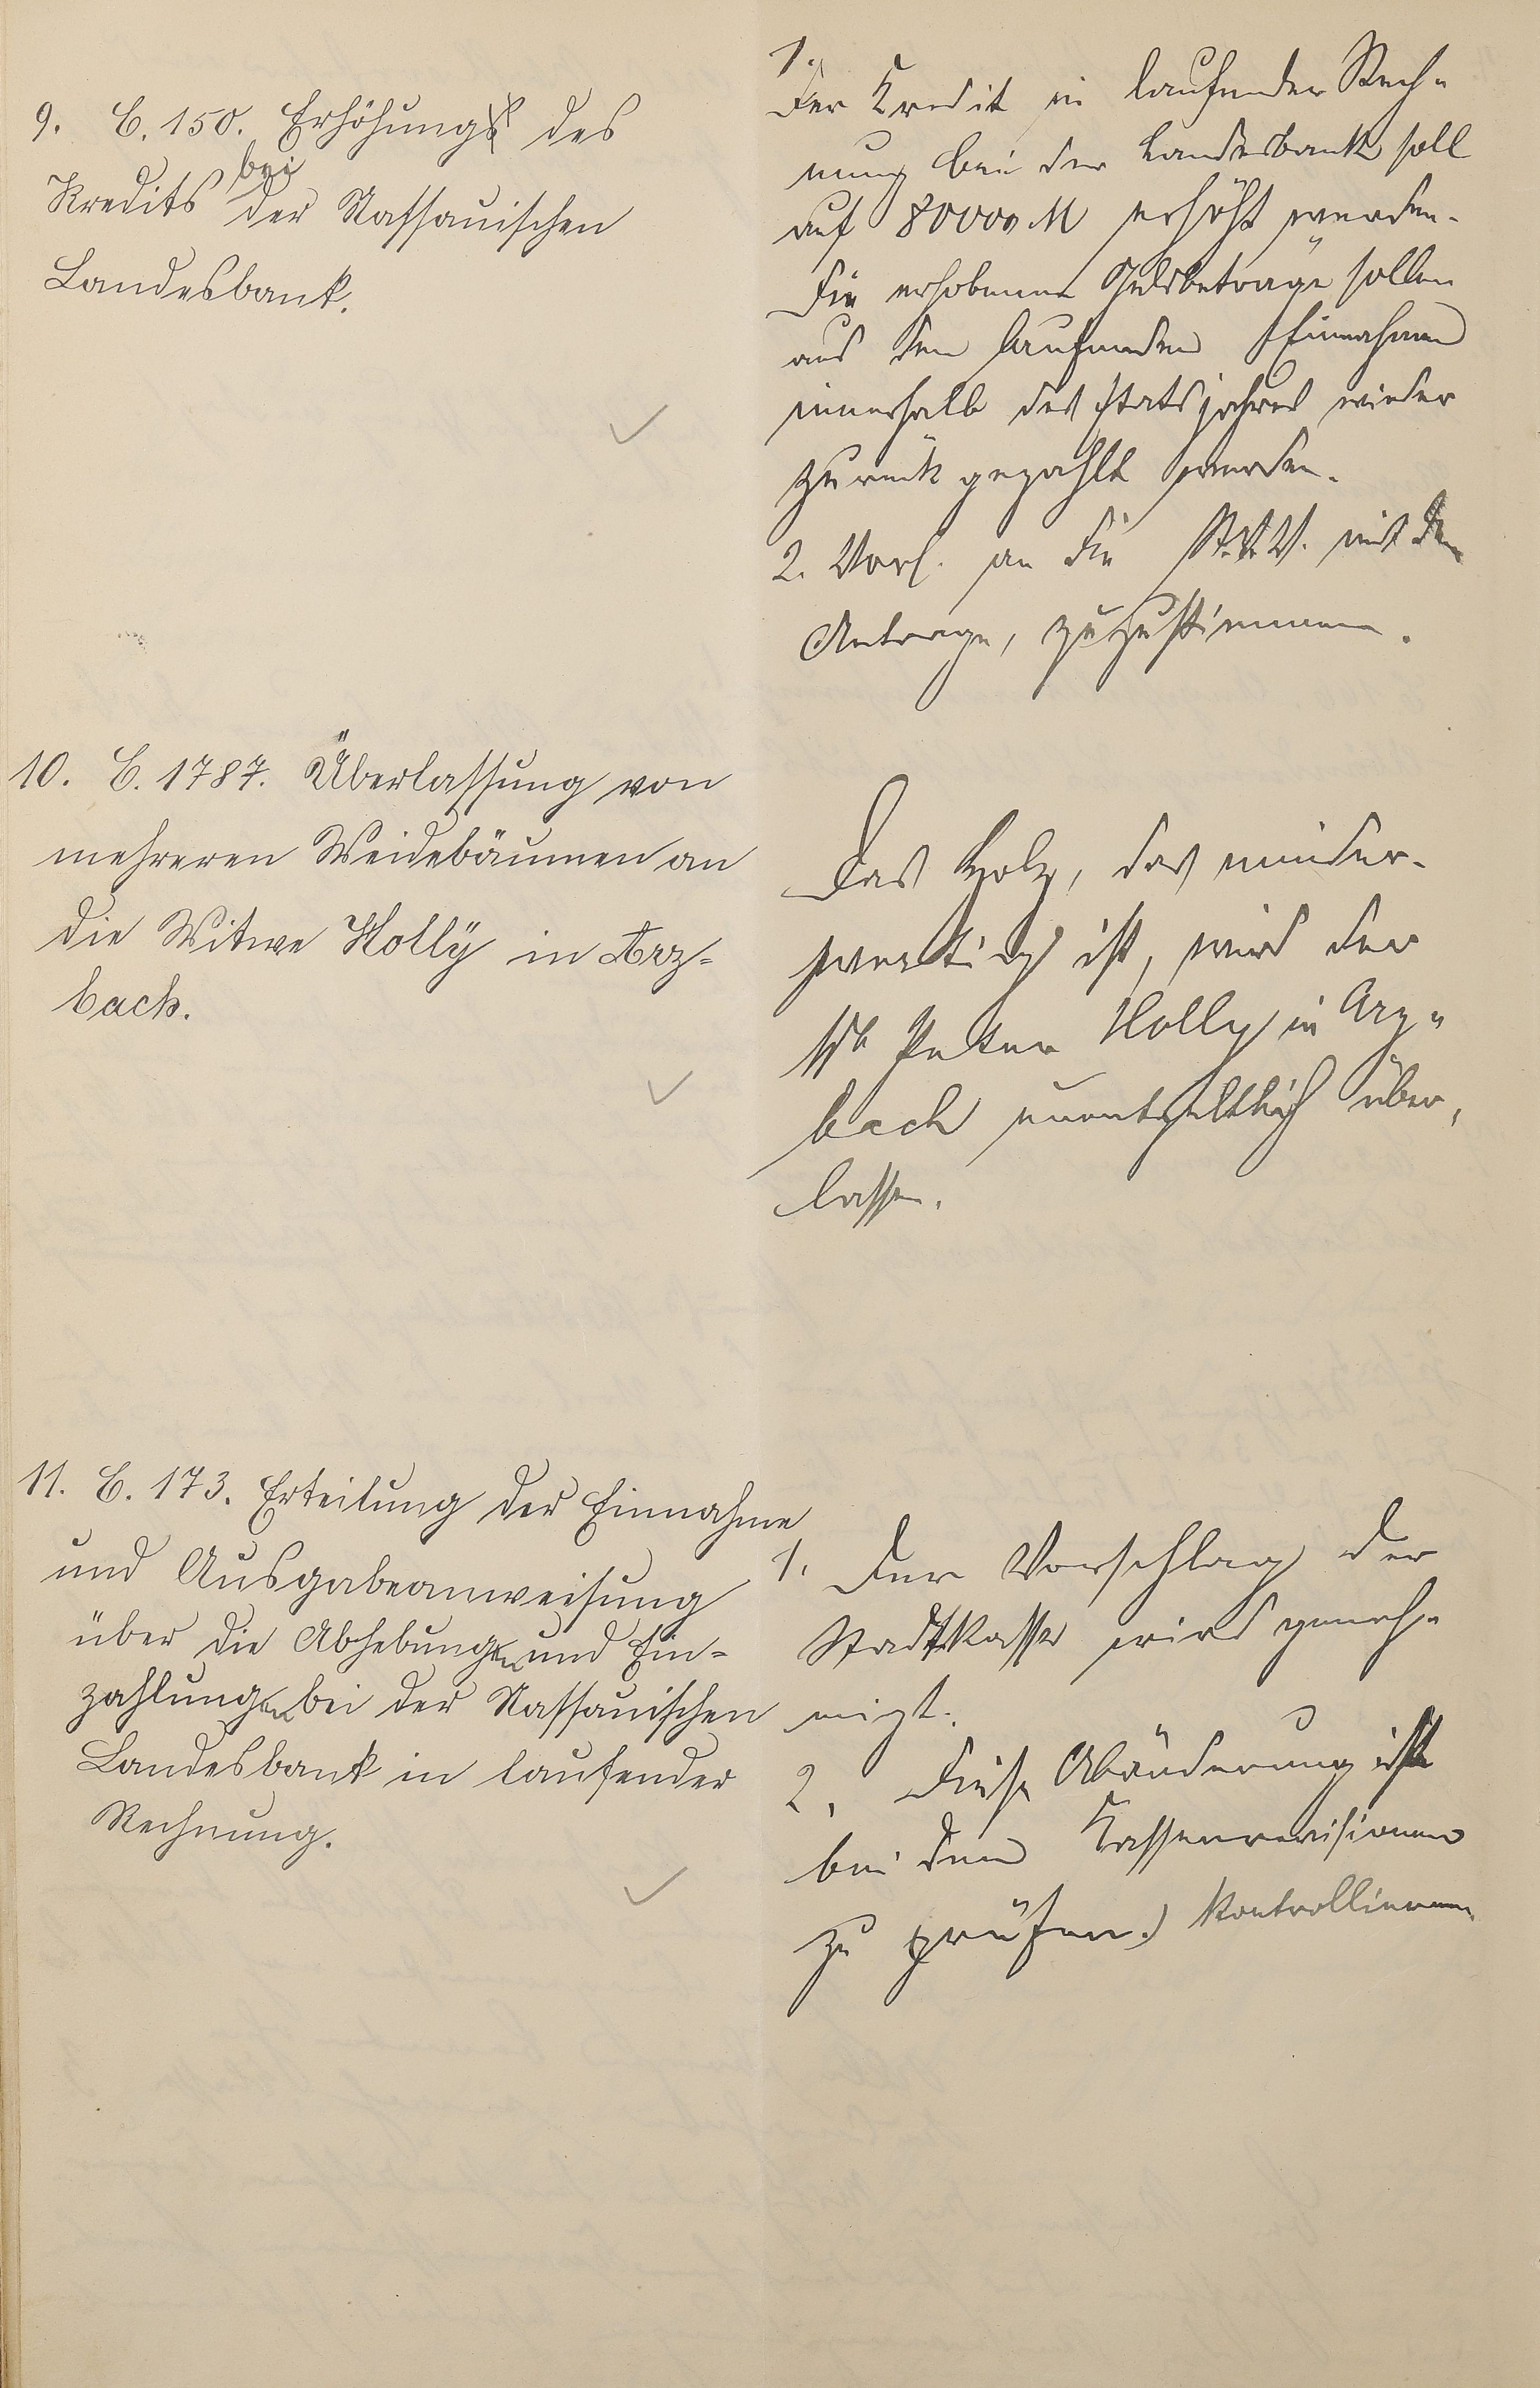 9. C. 150. Erhöhung des
Kredits bei der Nassauischen
Landesbank.
1.
Der Kredit in laufender Rech-
nung bei der Landesbank soll
auf 80000 M erhöht werden.
Die erhobenen Geldbeträge sollen
aus den laufenden Einnahmen
innerhalb des Etatsjahres wieder
zurück gezahlt werden.
2. Vorl. an die St.V.V. mit dem
Antrage, zuzustimmen.
10. C. 1787. Überlassung von
mehreren Weidebäumen an
die Witwe Holly in Arz-
bach.
Das Holz, das minder-
wertig ist, wird der
Peter Holly in Arz-
bach unentgeltlich über-
lassen.
11. C. 173. Erteilung der Einnahme
und Ausgabeanweisung
über die Abhebungen und Ein-
zahlungen bei der Nassauischen
Landesbank in laufender
Rechnung.
1. Der Vorschlag der
Stadtkasse wird geneh-
migt.
2. Diese Abänderung ist
bei den Kassenrevisionen
zu prüfen.) kontrollieren